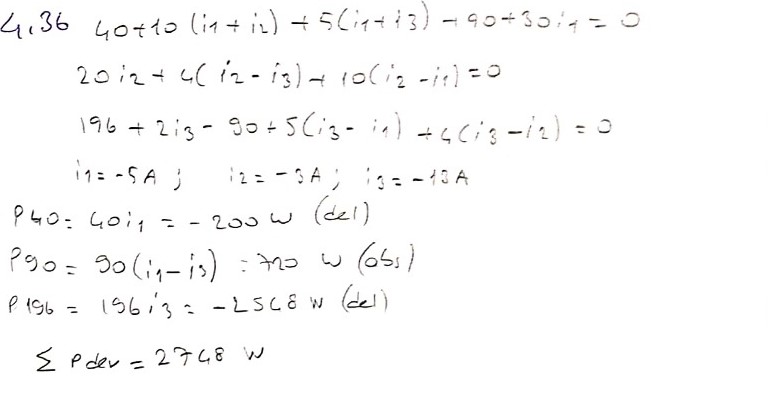 4.36 40+10(i1+i2)+5(i1+i3)+90+30i1=0
20i2+4(i2-i3)+10(i2-i1)=0
196+2i3-90+5(i3-i1)+4(i3-i2)=0
i1=-5A; i2=-3A; i3=-13A
P40=40i1=-200W (del)
P90=90(i1-i3)=720 W (obs)
P196=196i3=-2548W (del)
Σ Pdev=2748 W